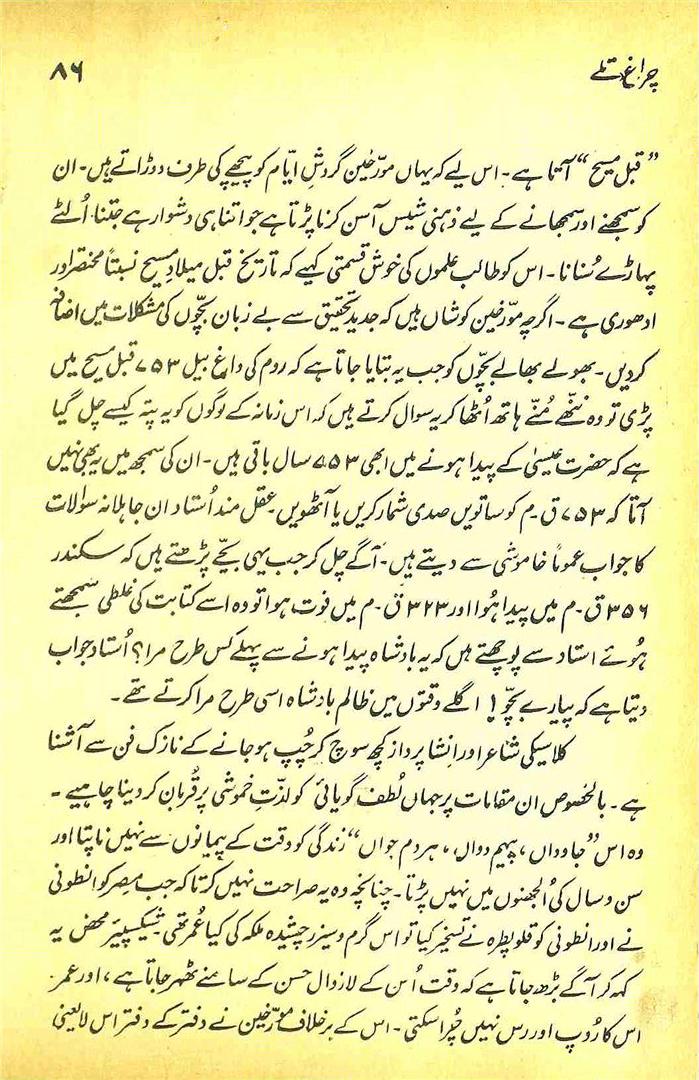 چراغ تلے
۸۶
”قبل مسیح“ آتا ہے۔ اس لیے کہ یہاں مورّخین گردشِ ایّام کو پیچھے کی طرف دوڑاتے ہیں۔ ان
کو سمجھنے اور سمجھانے کے لیے ذہنی شیس آسن کرنا پڑتا ہے جو اتنا ہی دشوار ہے جتنا اُلٹے
پہاڑے سُنانا۔ اس کو طالب علموں کی خوش قسمتی کہیے کہ تاریخ قبل میلادِ مسیح نسبتاً مختصر اور
ادھوری ہے۔ اگرچہ مورّخین کوشاں ہیں کہ جدید تحقیق سے بے زبان بچّوں کی مشکلات میں اضافہ
کر دیں۔ بھولے بھالے بچّوں کو جب یہ بتایا جاتا ہے کہ روم کی داغ بیل ۷۵۳ قبل مسیح میں
پڑی تو وہ ننھے مُنّے ہاتھ اُٹھا کر یہ سوال کرتے ہیں کہ اس زمانہ کے لوگوں کو یہ پتہ کیسے چل گیا
ہے کہ حضرت عیسیٰ کے پیدا ہونے میں ابھی ۷۵۳ سال باقی ہیں۔ ان کی سمجھ میں یہ بھی نہیں
آتا کہ ۷۵۳ ق۔م کو ساتویں صدی شمار کریں یا آٹھویں۔ عقل مند اُستاد ان جاہلانہ سوالات
کا جواب عموماً خاموشی سے دیتے ہیں۔ آگے چل کر جب یہی بچّے پڑھتے ہیں کہ سکندر
۳۵۶ ق۔م میں پیدا ہُوا اور ۳۲۳ ق۔م میں فوت ہوا تو وہ اسے کتابت کی غلطی سمجھتے
ہُوئے استاد سے پوچھتے ہیں کہ یہ بادشاہ پیدا ہونے سے پہلے کس طرح مرا؟ اُستاد جواب
دیتا ہے کہ پیارے بچّو! اگلے وقتوں میں ظالم بادشاہ اسی طرح مرا کرتے تھے۔
کلاسیکی شاعر اور انشا پرداز کچھ سوچ کر چُپ ہو جانے کے نازک فن سے آشنا
ہے۔ بالخصوص ان مقامات پر جہاں لُطفِ گویائی کو لذّتِ خموشی پر قُربان کر دینا چاہیے۔
وہ اس ”جاوداں، پیہم دواں، ہر دم جواں“ زندگی کو وقت کے پیمانوں سے نہیں ناپتا اور
سن و سال کی اُلجھنوں میں نہیں پڑتا۔ چنانچہ وہ یہ صراحت نہیں کرتا کہ جب مِصر کو انطونی
نے اور انطونی کو قلوپطرہ نے تسخیر کیا تو اس گرم و سیزر چشیدہ ملکہ کی کیا عُمر تھی۔ شیکسپیئر محض یہ
کہہ کر آگے بڑھ جاتا ہے کہ وقت اُس کے لازوال حسن کے سامنے ٹھہر جاتا ہے، اور عمر
اس کا رُوپ اور رس نہیں چُرا سکتی۔ اس کے برخلاف مورّخین نے دفتر کے دفتر اس لایعنی